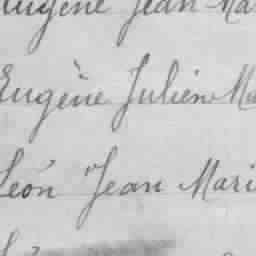 Eugène Jean Ma
Eugène Julien Ma
Léon Jean Mari